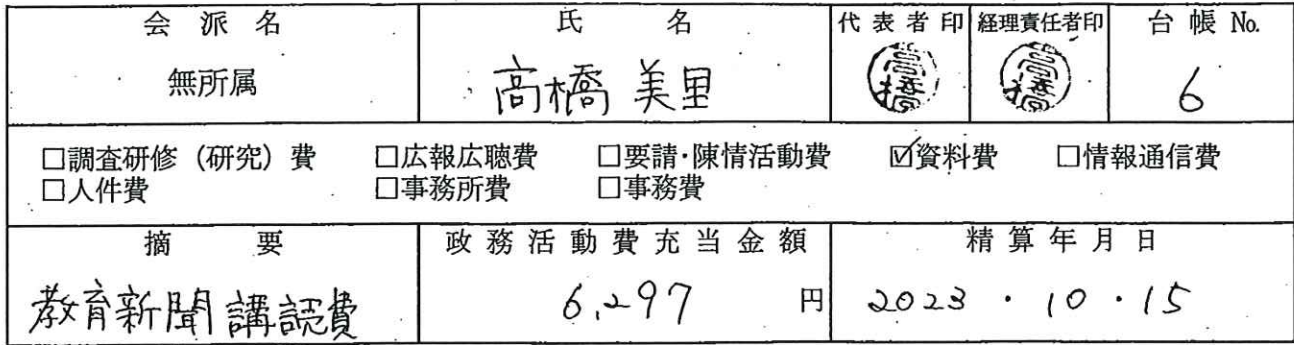 会派名 氏名 代表者印 経理責任者印 台帳No.
無所属 高橋 美里 高橋 高橋 6
□調査研修（研究）費 □広報広聴費 □要請・陳情活動費 ☑資料費 □情報通信費
□人件費 □事務所費 □事務費
摘要 政務活動費充当金額 精算年月日
教育新聞講読費 6,297 円 2023・10・15